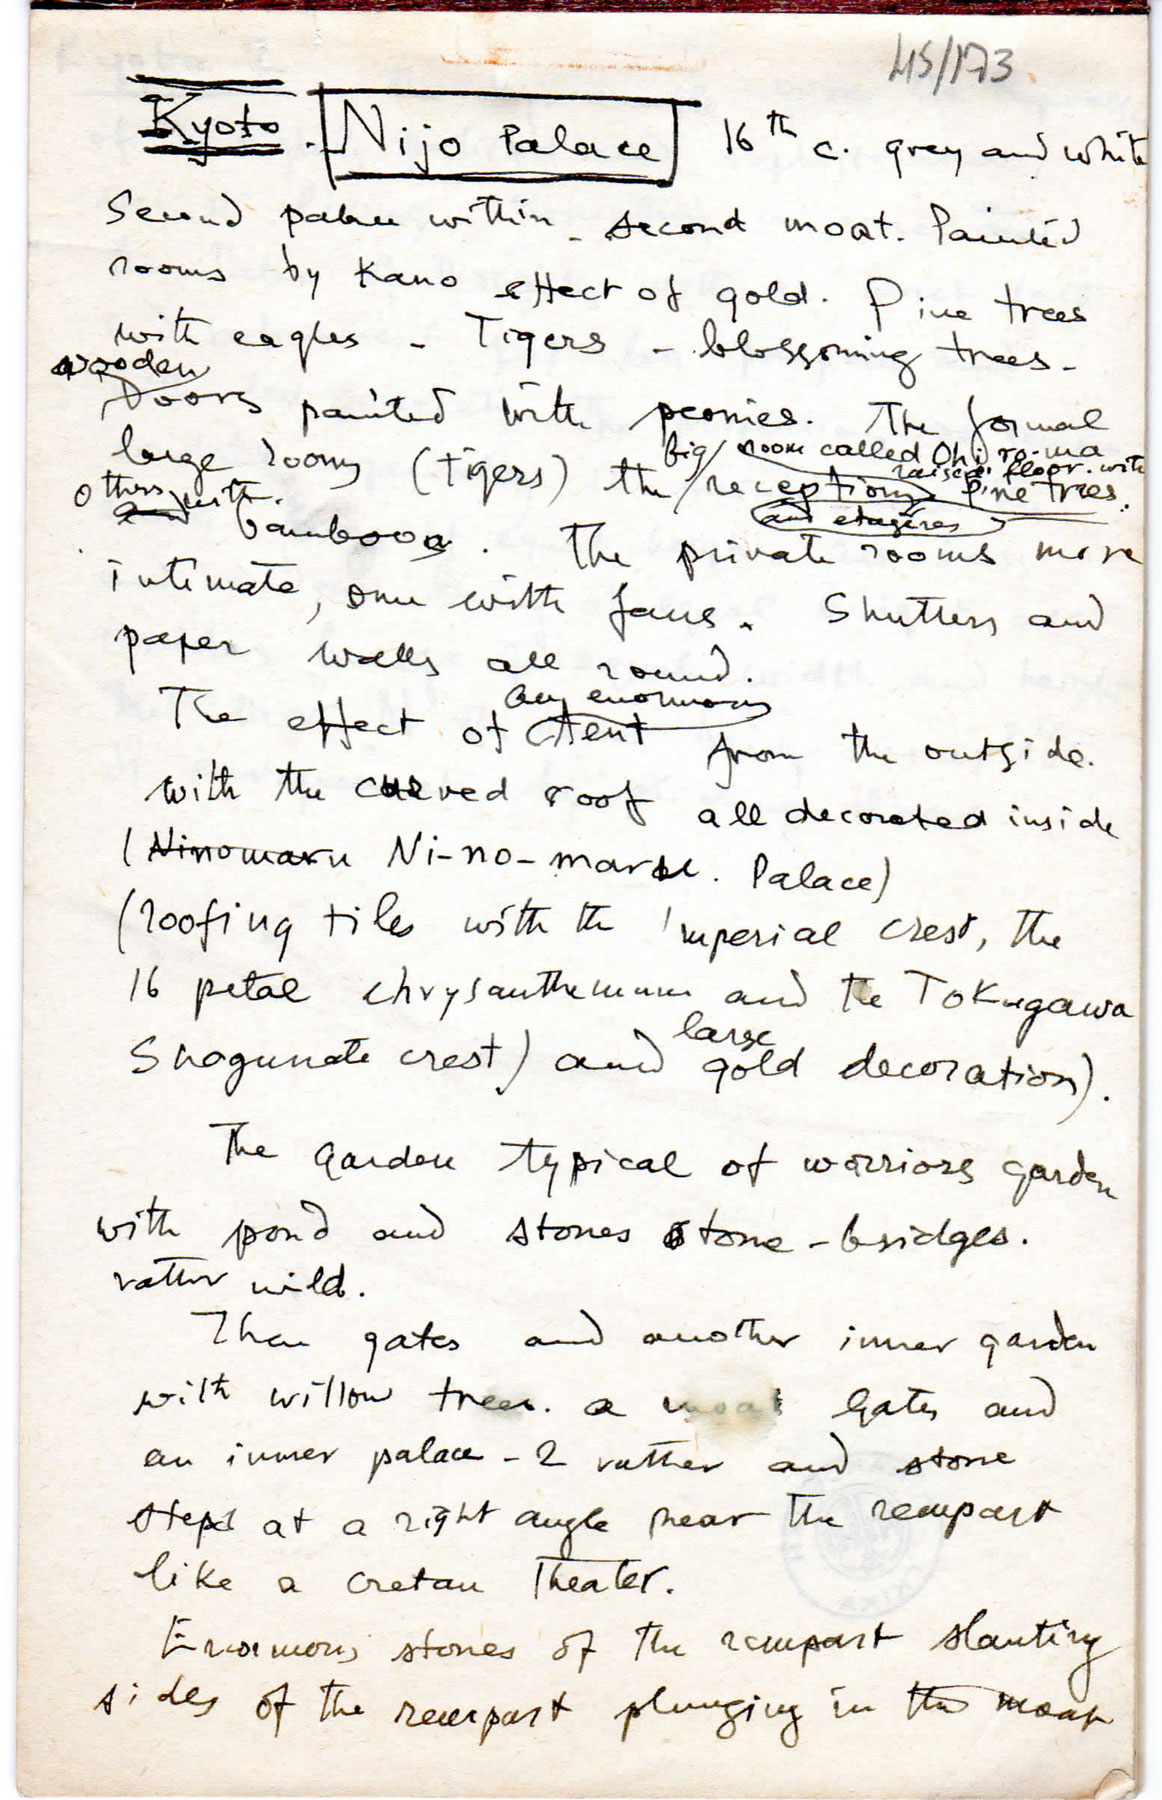 45/173
Kyoto. Nijo Palace 16th c. grey and white
Second palace within - second moat. Painted
rooms by Kano effect of gold. Pine trees
with eagles - Tigers - blossoming trees -
wooden
Doors painted with peonies. The formal
big room called Ohiroma
large rooms (tigers) the receptions raised floor. with Pine trees.
and etagères
others with
and bamboos. The private rooms more
intimate, one with fans. Shutters and
paper walls all round.
any enormous
The effect of tent from the outside.
with the curved roof all decorated inside
(Ninomaru Ni-no-maru. Palace)
(roofing tiles with the imperial crest, the
16 petal chrysanthemum and the Tokugawa
large
Shogunate crest) and gold decoration).
The garden typical of warriors garden
with pond and stones stone-bridges.
rather wild.
Then gates and another inner garden
with willow trees. a moat Gates and
an inner palace - 2 rather and stone
steps at a right angle near the rempart
like a cretan Theater.
Enormous stones of the rempart slanting
sides of the rempart plunging in the moat